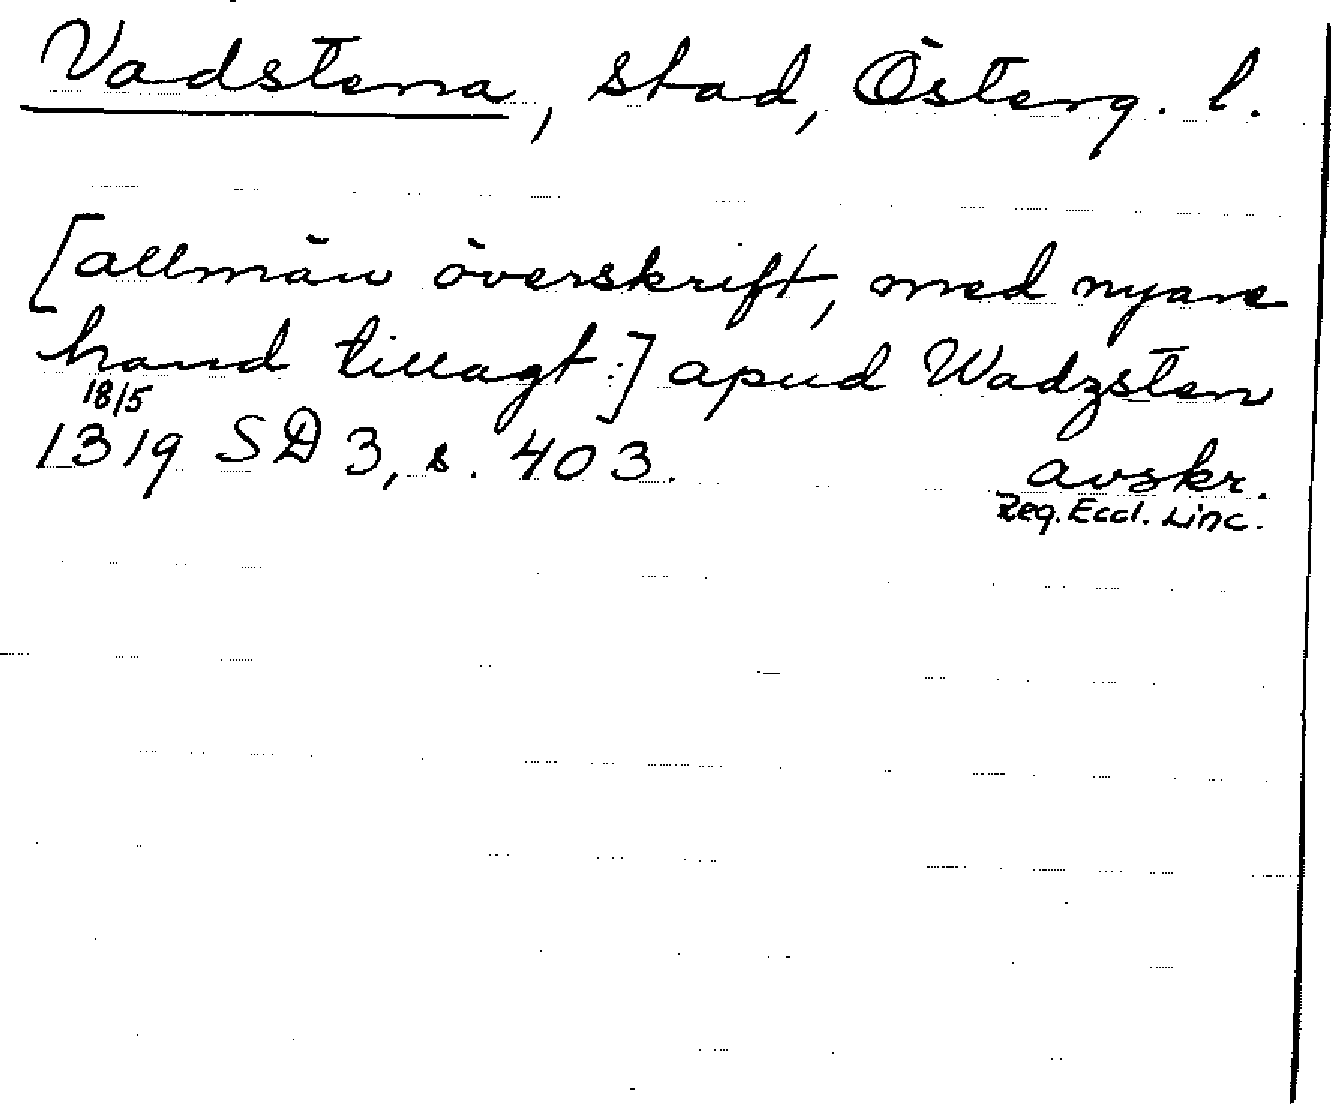 Vadstena, stad, Österg. l.
[allmän överskrift, med nyare
hand tillagt:] apud Wadzsten
18/5
1319 SD 3, s. 403. avskr.
Reg. Eccl. Linc.